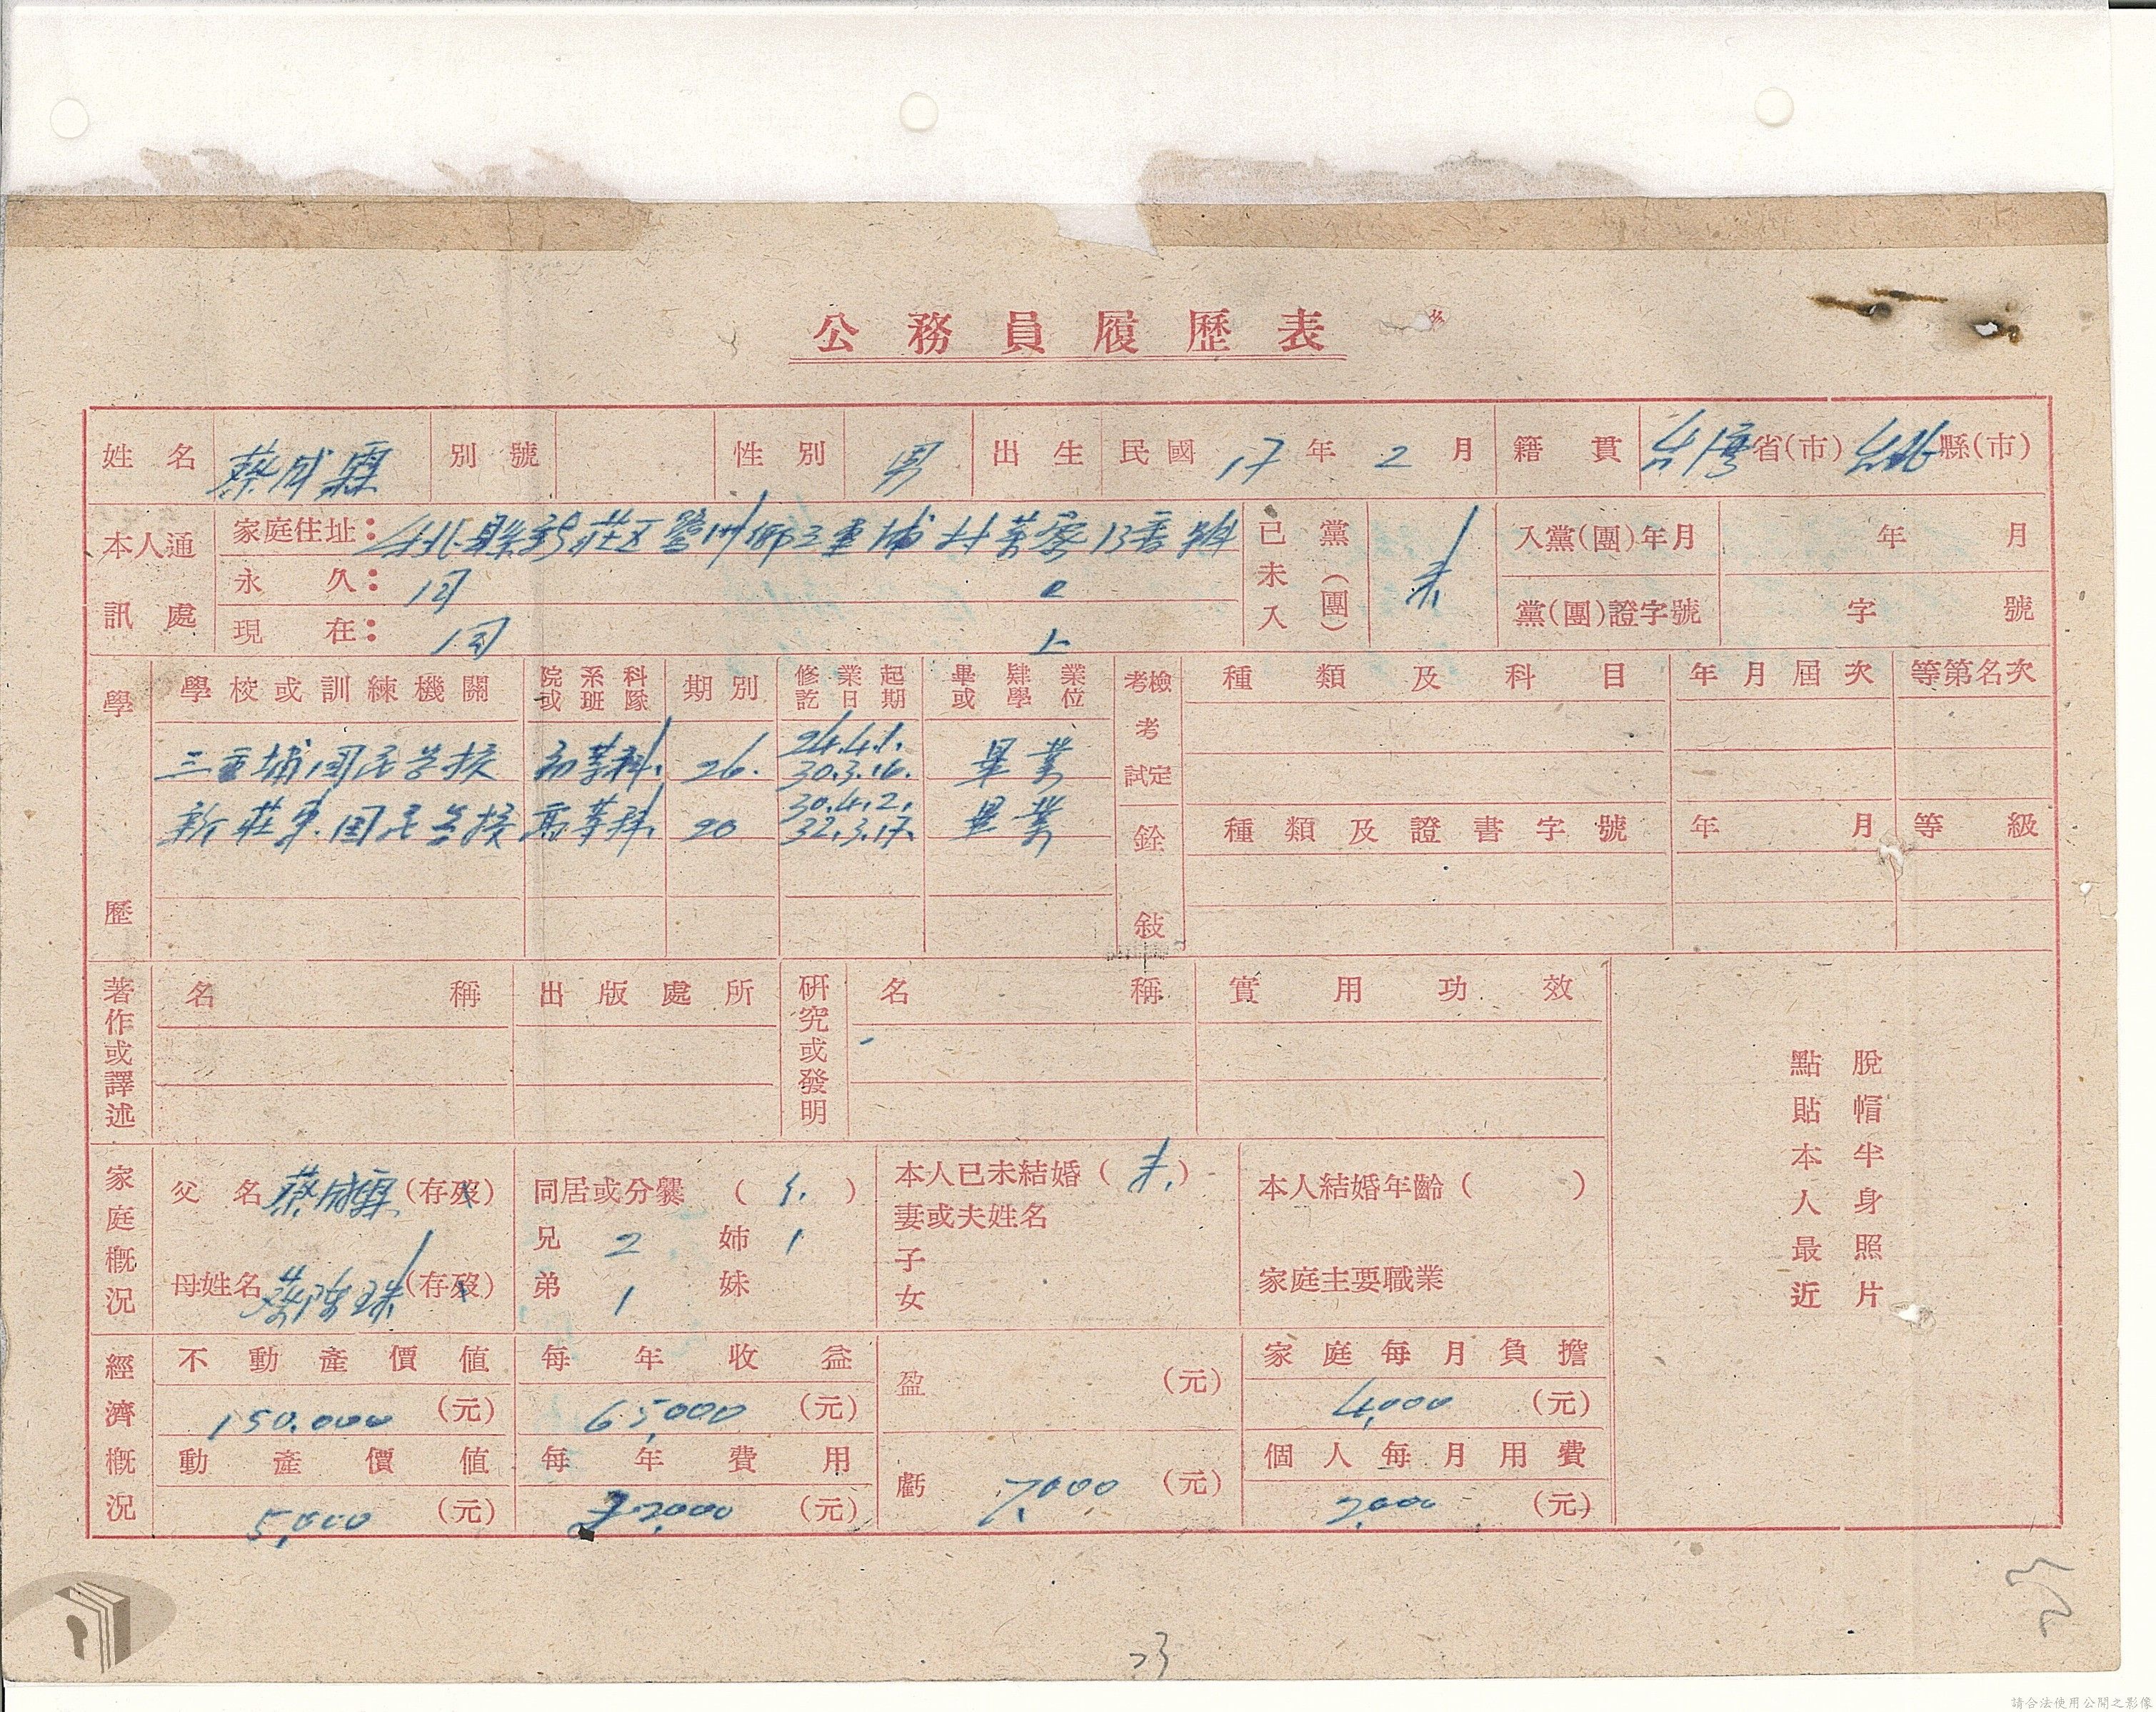 公務員履歷表
姓名 蔡成霖 別號 性別 男 出生 民國 17 年 2 月 籍貫 台灣省(市) 台北縣(市)
本人通訊處
家庭住址： 台北縣新莊区鷺洲鄉三重埔村 13番號
永久： 同 上
現在： 同 上
已未入黨(團) 未
入黨(團)年月 年 月
黨(團)證字號 字 號
學歷
學校或訓練機關 院系科或班隊 期別 修業起訖日期 畢肄業或學位
三重埔國民學校 初等科 26. 24.4.1. 30.3.16. 畢業
新莊東國民學校 高等科 20 30.4.2. 32.3.17. 畢業
考檢考試定 種類及科目 年月屆次 等第名次
銓敍 種類及證書字號 年 月 等級
著作或譯述 名稱 出版處所
研究或發明 名稱 實用功效
脫帽半身照片
點貼本人最近
家庭概況
父名 蔡成 (存歿)
母姓名 蔡陳珠 (存歿)
同居或分爨( )
兄 2 姊 1
弟 1 妹
本人已未結婚(未)
妻或夫姓名
子
女
本人結婚年齡( )
家庭主要職業
經濟概況
不動產價值 150.000 (元)
每年收益 65,000 (元)
動產價值 5,000 (元)
每年費用 72,000 (元)
盈 (元)
虧 7,000 (元)
家庭每月負擔 4,000 (元)
個人每月用費 2,000 (元)
23
請合法使用公開之影像